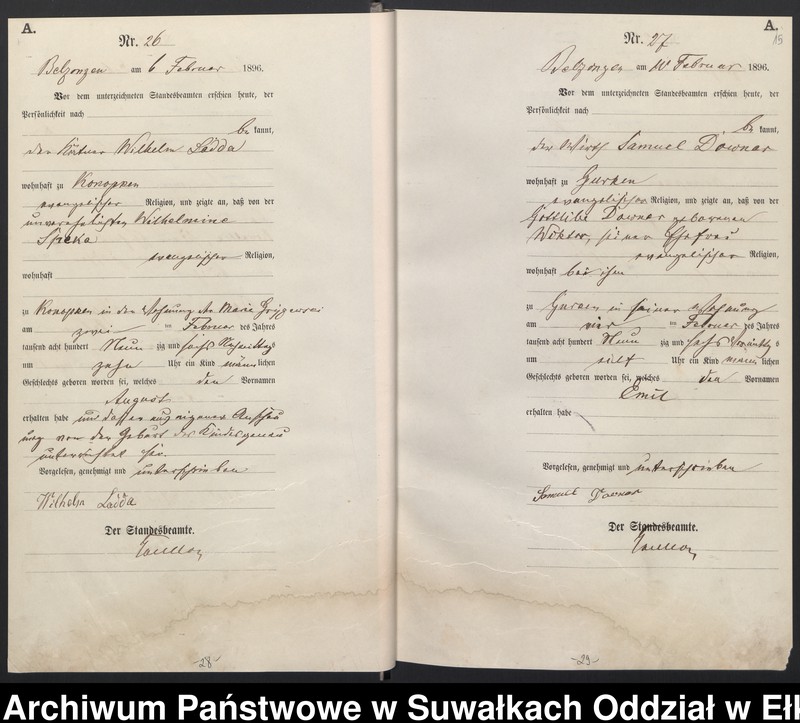 A.
Nr. 26
Belzonzen am 6 Februar 1896.
Vor dem unterzeichneten Standesbeamten erschien heute, der
Persönlichkeit nach
be kannt,
der Wilhelm Ladda
wohnhaft zu Konopken
evangelischer Religion, und zeigte an, daß von der
unverehelichten Wilhelmine
Speka
evangelischer Religion,
wohnhaft
zu Konopken in der Wohnung der Marie
am zwei ten Februar des Jahres
tausend acht hundert Neun zig und sechs Nachmittags
um zehn Uhr ein Kind männ lichen
Geschlechts geboren worden sei, welches den Vornamen
August
erhalten habe und daß er aus eigener Anschau
ung von der Geburt des Kindes genau
unterrichtet sei.
Vorgelesen, genehmigt und unterschrieben
Wilhelm Ladda
Der Standesbeamte.
-28-
A.
15
Nr. 27
Belzonzen am 10 Februar 1896.
Vor dem unterzeichneten Standesbeamten erschien heute, der
Persönlichkeit nach
be kannt,
der Wirth Samuel Downar
wohnhaft zu Gurken
evangelischer Religion, und zeigte an, daß von der
Gottliebe Downar geborenen
Wiktor, seiner Ehefrau
evangelischer Religion,
wohnhaft bei ihm
zu Gurken in seiner Wohnung
am vier ten Februar des Jahres
tausend acht hundert Neun zig und sechs Vormittag s
um elf Uhr ein Kind männ lichen
Geschlechts geboren worden sei, welches den Vornamen
Emil
erhalten habe
Vorgelesen, genehmigt und unterschrieben
Samuel Downar
Der Standesbeamte.
-29-
Archiwum Państwowe w Suwałkach Oddział w Eł